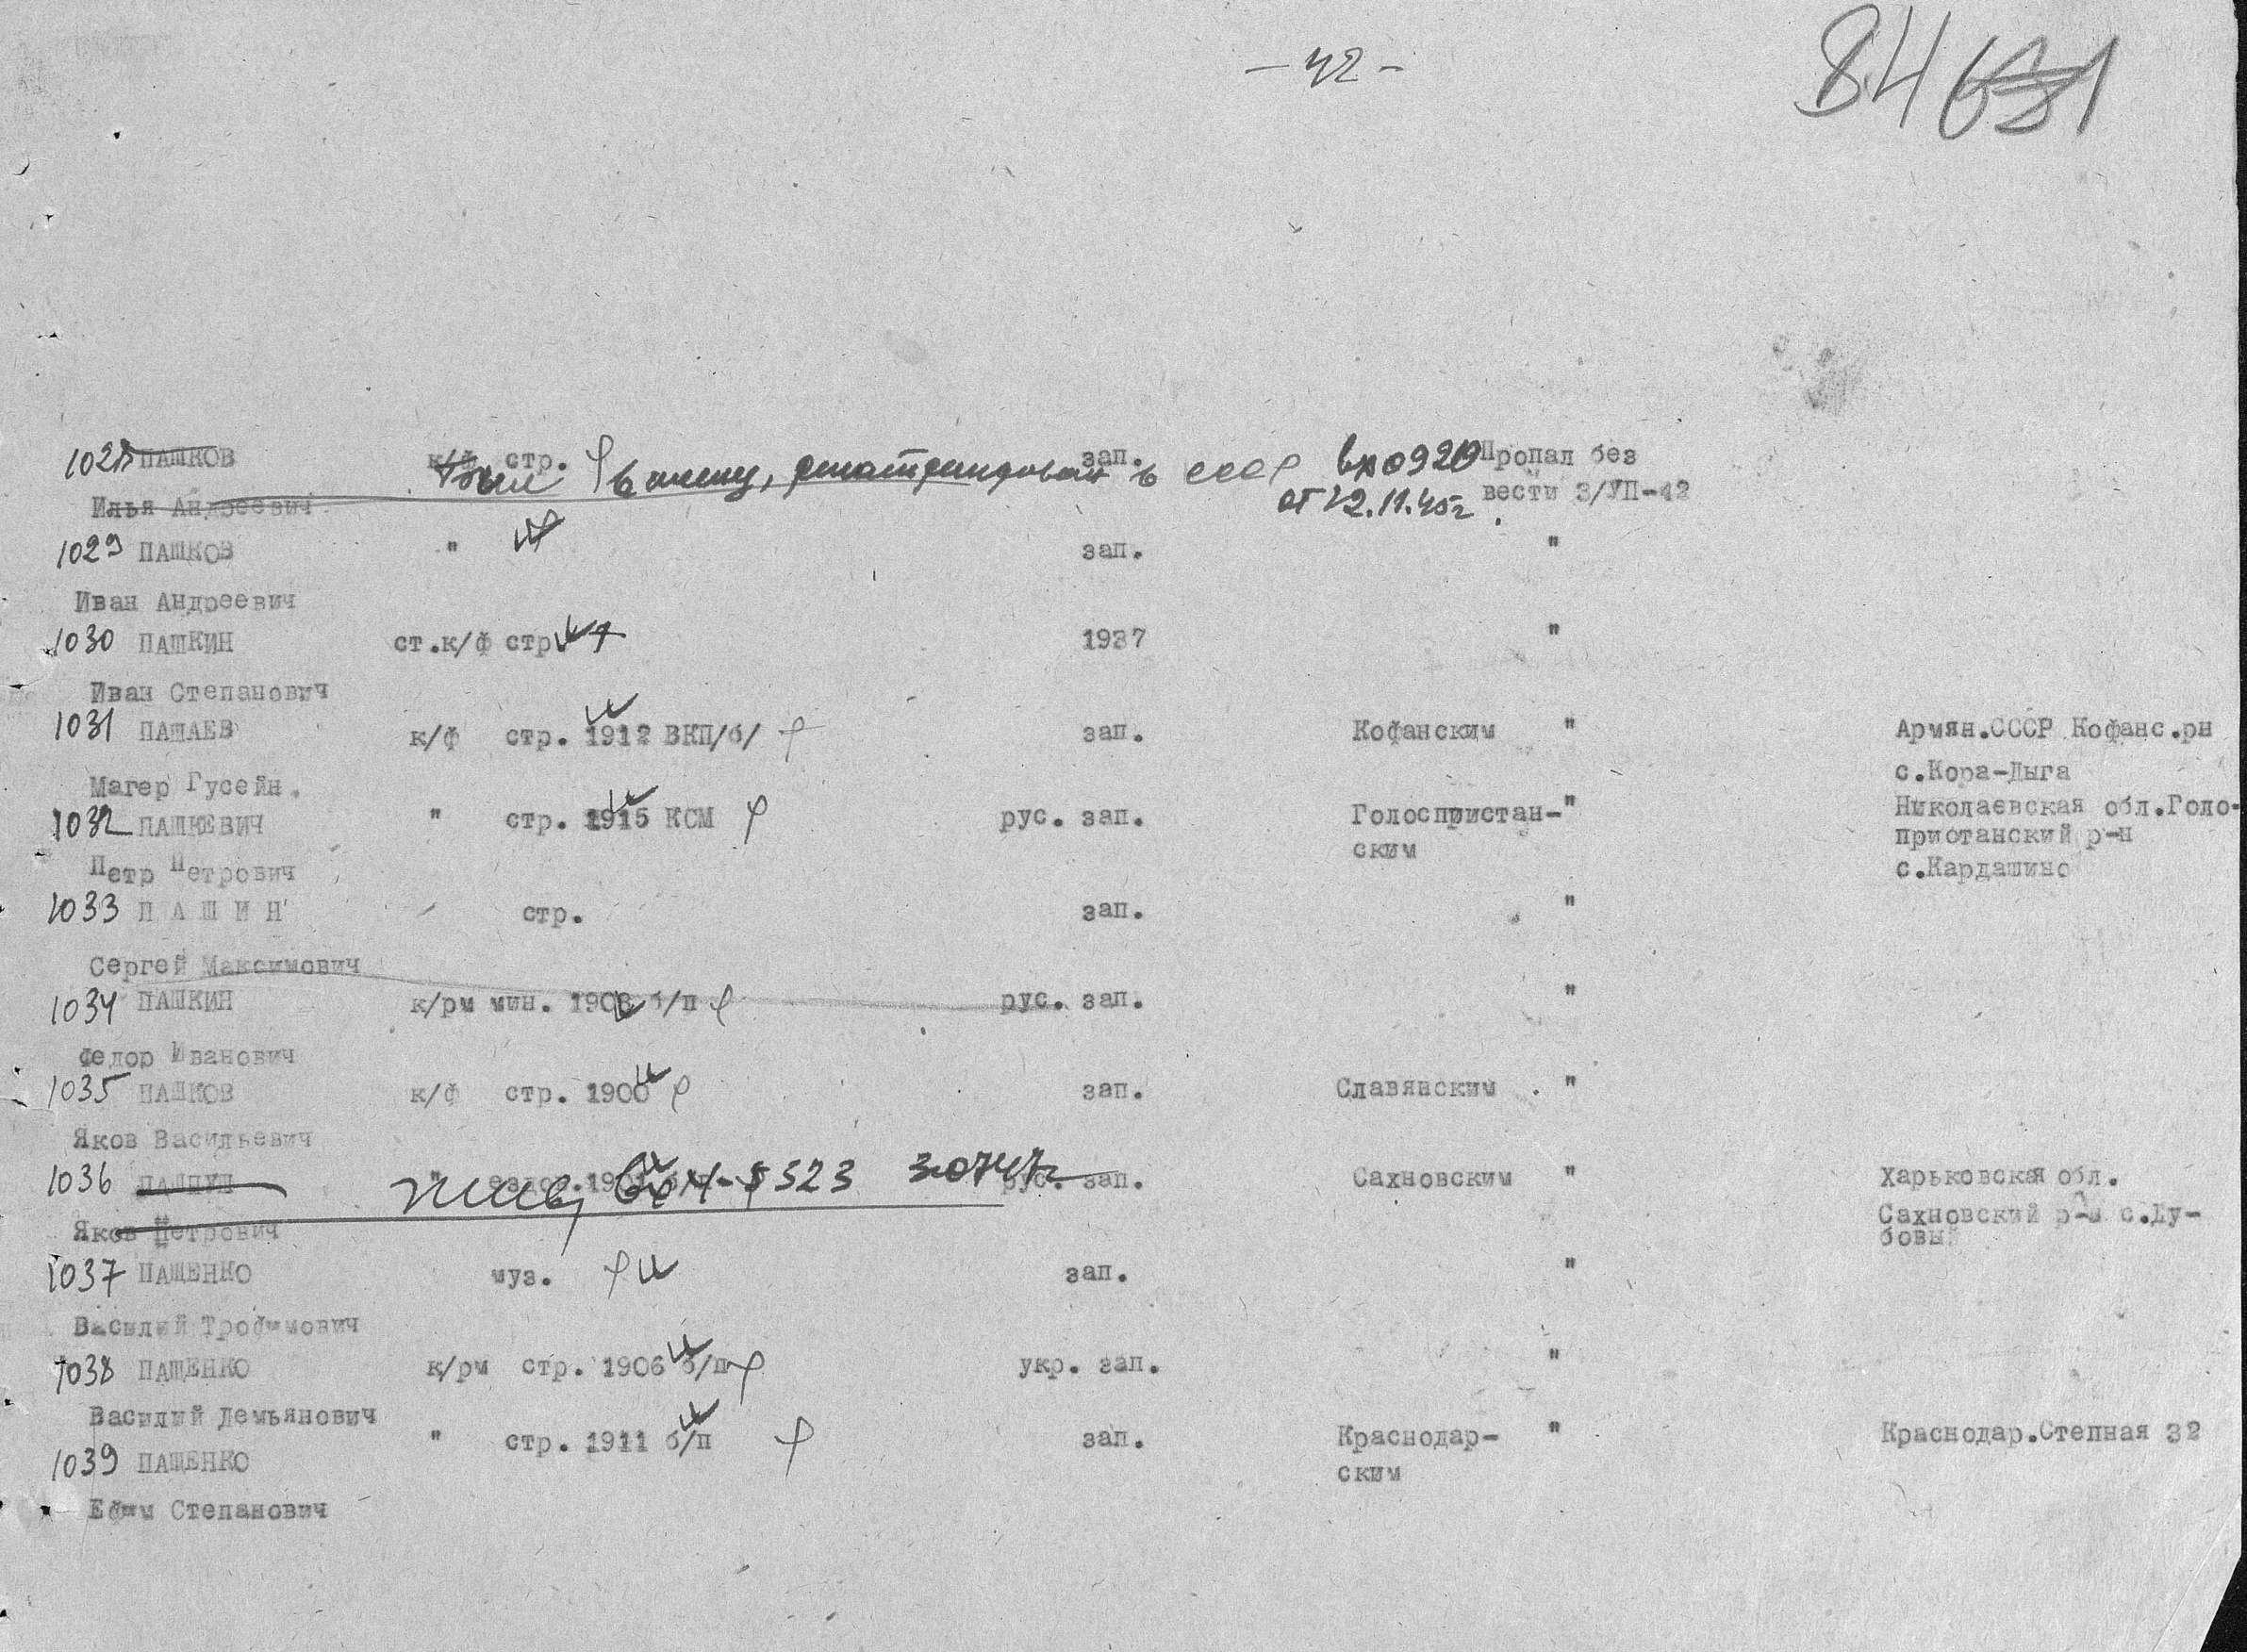 - 42 -
84
1028 ПАШКОВ к/ф стр. зап. Пропал без
был в плену, репатриирован в СССР вх 0920
Илья Андреевич от 22.11.45г. вести 3/УП-42
1029 ПАШКОВ " зап. "
Иван Андреевич
1030 ПАШКИН ст.к/ф стр. 1937 "
Иван Степанович
1031 ПАШАЕВ к/ф стр. 1912 ВКП/б/ зап. Кофанским " Армян.СССР Кофанс.рн
Магер Гусейн. с.Кора-Дыга
1032 ПАШКЕВИЧ " стр. 1915 КСМ рус. зап. Голоспристан- " Николаевская обл.Голо-
ским пристанский р-н
Петр Петрович с.Кардашино
1033 ПАШИН стр. зап. "
Сергей Максимович
1034 ПАШКИН к/рм мин. 1908 б/п рус. зап. "
Федор Иванович
1035 ПАШКОВ к/ф стр. 1900 зап. Славянским "
Яков Васильевич
1036 " рус. зап. Сахновским " Харьковская обл.
жив, вх 4-5323 30747г
Яков Петрович Сахновский р-н с.Ду-
бовы
1037 ПАЩЕНКО муз. зап. "
Василий Трофимович
1038 ПАЩЕНКО к/рм стр. 1906 б/п укр. зап. "
Василий Демьянович
" стр. 1911 б/п зап. Краснодар- " Краснодар.Степная 32
1039 ПАЩЕНКО ским
Ефим Степанович